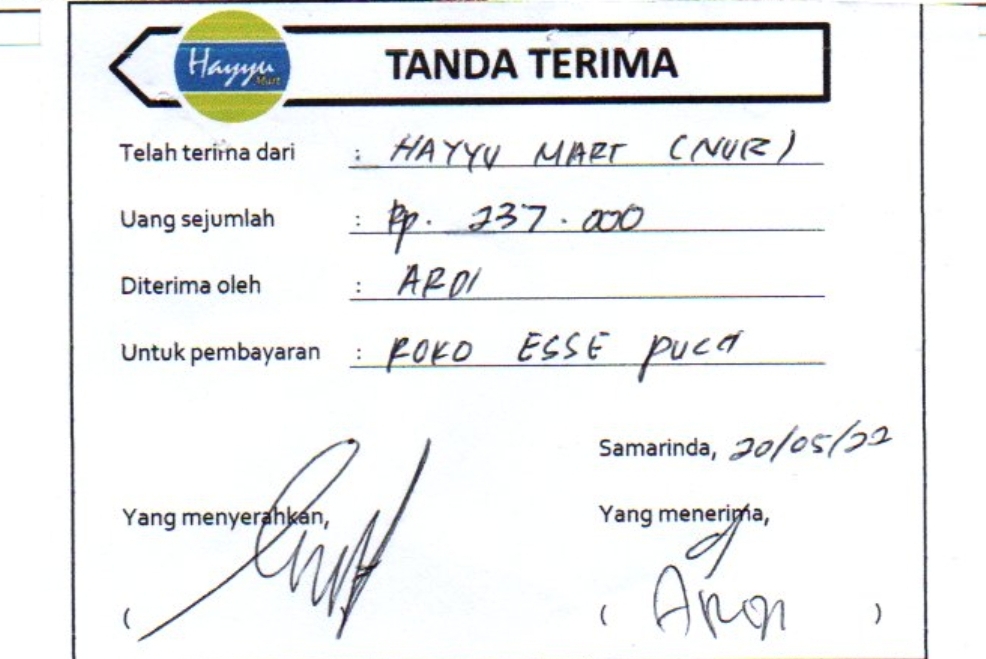 Hayyu
Mart
TANDA TERIMA
Telah terima dari : HAYYU MART (NUR)
Uang sejumlah : Rp. 237.000
Diterima oleh : ARDI
Untuk pembayaran : ROKO ESSE PUCH
Samarinda, 20/05/22
Yang menyerahkan, Yang menerima,
( ( ARDI )